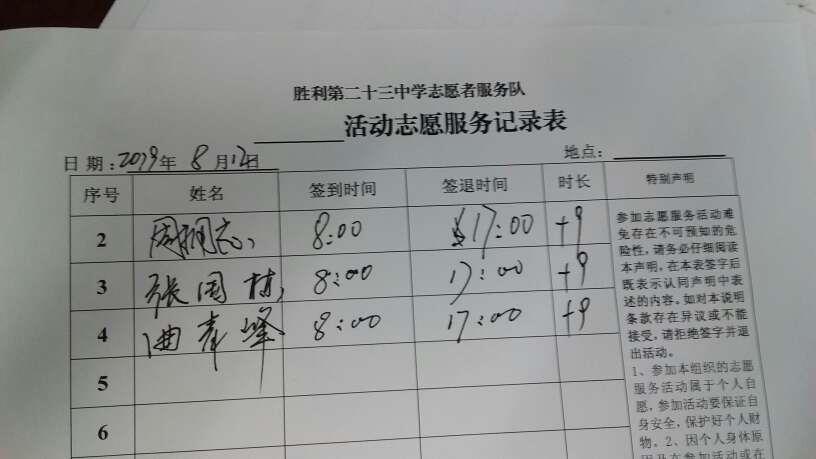 胜利第二十三中学志愿者服务队
活动志愿服务记录表
日期:2019年8月12日 地点:
序号 姓名 签到时间 签退时间 时长 特别声明
2 8:00 17:00 +9
3 张国栋 8:00 17:00 +9
4 曲青峰 8:00 17:00 +9
5
6
参加志愿服务活动难
免存在不可预知的危
险性,请务必仔细阅读
本声明。在本表签字后
既表示认同声明中表
述的内容。如对本说明
条款存在异议或不能
接受,请拒绝签字并退
出活动。
1、参加本组织的志愿
服务活动属于个人自
愿,参加活动要保证自
身安全,保护好个人财
物。2、因个人身体原
因及在参加活动或在